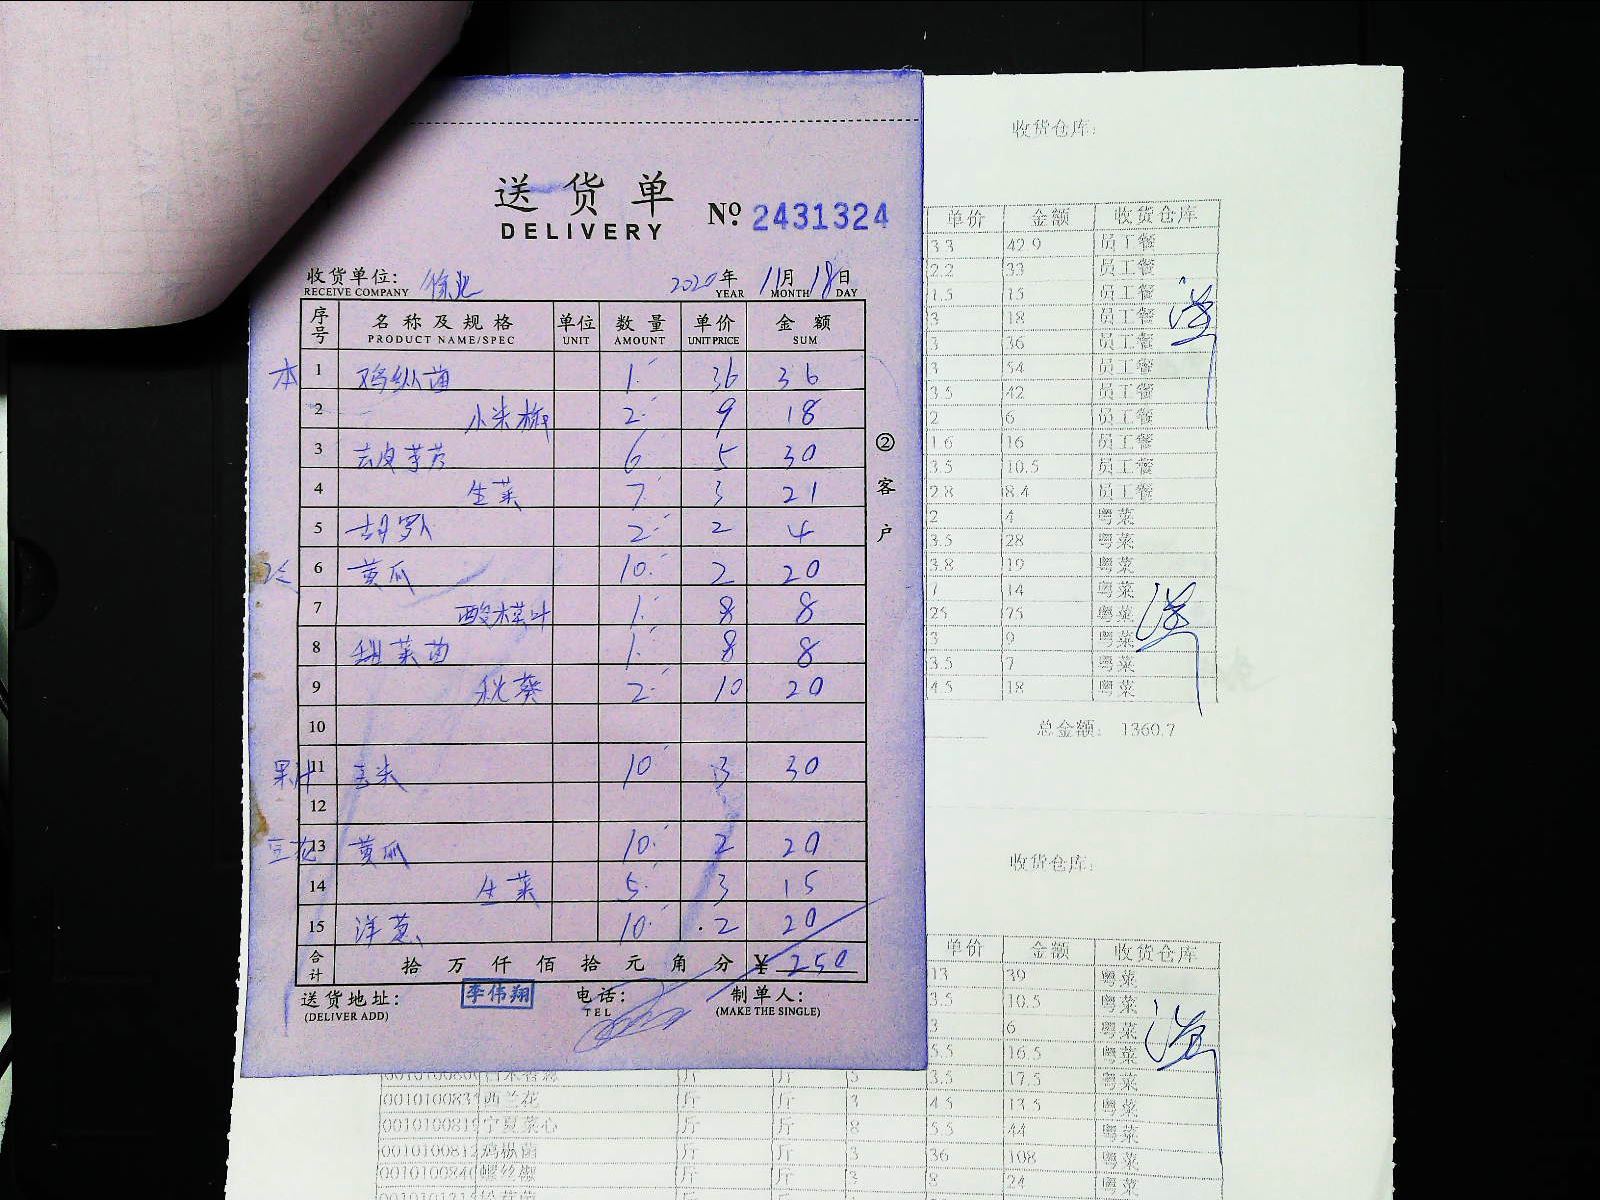 送货单
DELIVERY
No. 2431324
收货单位: 徐记 2020年 11月 18日
RECEIVE COMPANY YEAR MONTH DAY
序号 名称及规格 单位 数量 单价 金额
PRODUCT NAME/SPEC UNIT AMOUNT UNIT PRICE SUM
本 1 鸡纵菌 1 36 36
2 小米椒 2 9 18
3 去皮芋艿 6 5 30
4 生菜 7 3 21
5 胡罗卜 2 2 4
6 黄瓜 10 2 20
7 酸木菜叶 1 8 8
8 甜菜苗 1 8 8
9 秋葵 2 10 20
10
果汁 11 玉米 10 3 30
12
豆花 13 黄瓜 10 2 20
14 生菜 5 3 15
15 洋葱 10 2 20
合计 拾 万 仟 佰 拾 元 角 分 ¥ 250
送货地址: 李伟翔 电话: 制单人:
(DELIVER ADD) TEL (MAKE THE SINGLE)
②客户
收货仓库:
单价 金额 收货仓库
3.3 42.9 员工餐
2.2 33 员工餐
1.5 15 员工餐
3 18 员工餐
3 36 员工餐
3 54 员工餐
3.5 42 员工餐
2 6 员工餐
1.6 16 员工餐
3.5 10.5 员工餐
2.8 8.4 员工餐
2 4 粤菜
3.5 28 粤菜
3.8 19 粤菜
7 14 粤菜
25 75 粤菜
3 9 粤菜
3.5 7 粤菜
4.5 18 粤菜
总金额: 1360.7
收货仓库:
单价 金额 收货仓库
13 39 粤菜
3.5 10.5 粤菜
3 6 粤菜
5.5 16.5 粤菜
斤 斤 5 3.5 17.5 粤菜
西兰花 斤 斤 3 4.5 13.5 粤菜
宁夏菜心 斤 斤 8 5.5 44 粤菜
鸡枞菌 斤 斤 3 36 108 粤菜
螺丝椒 斤 斤 3 8 24 粤菜